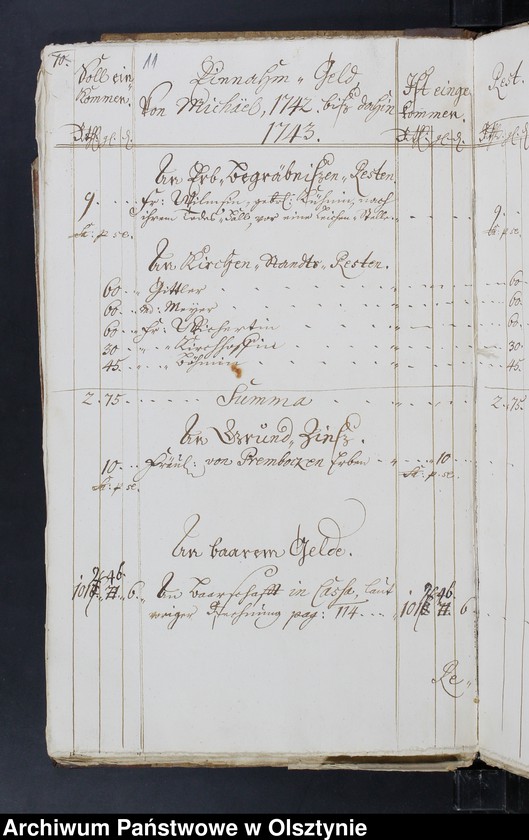 10.
11
Soll ein-
kommen.
Einnahm-Geld
Von Michäel, 1742. bisz dahin
1743.
Ist einge-
kommen.
Rest.
An Erb-Begräbniszen-Resten.
9. Fr: Wilmsin, gebohr: Kühnin, nach
ihrem Todes-Fall, vor eine Leichen-Stelle 9.
St: p se. St: p se.
An Kirchen-Standts-Resten.
60 Gittler 60
60 Md: Meyer 60
60 Fr: Wichertin 60
30 " Kirchhoffin 30
45 " Böhmin 45
2 75 Summa 2 75
An Grund-Zinsz.
10 Fräul: von Prembocken Erben 10
St: p se. St: p se.
An baarem Gelde.
6 An Baarschafft in Cassa, laut
voriger Rechnung pag: 114 6
Re-
Archiwum Państwowe w Olsztynie